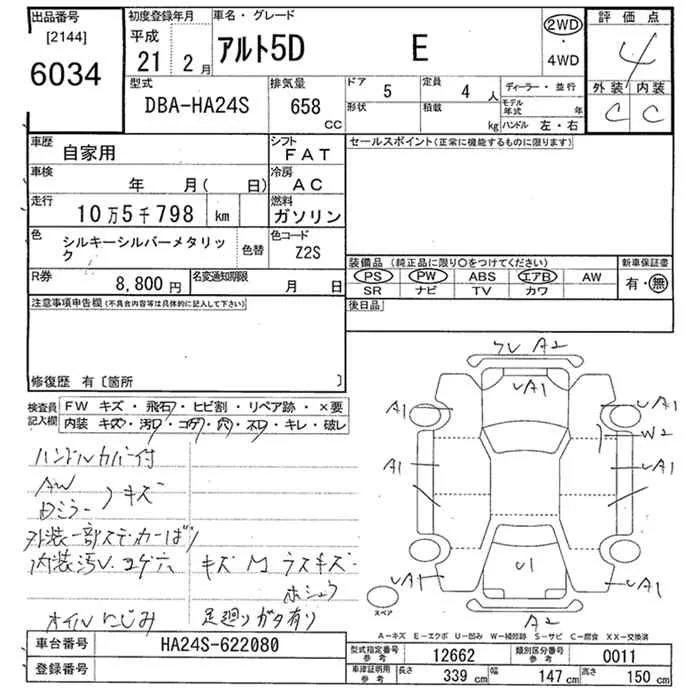 出品番号
[2144]
6034
初度登録年月
平成
21 2月
車名・グレード
アルト5D E
2WD
・
4WD
評価点
4
外装 内装
C C
型式
DBA-HA24S
排気量
658
CC
ドア
5
定員
4人
形状
積載
kg
ディーラー・並行
モデル年式 年
ハンドル 左・右
車歴
自家用
シフト
FAT
車検
年 月( 日)
冷房
AC
走行
10万5千798 km
燃料
ガソリン
色
シルキーシルバーメタリック
色替
色コード
Z2S
R券
8,800円
名変通知期限
月 日
セールスポイント(正常に機能するものに限ります)
装備品(純正品に限り○をつけてください)
PS PW ABS エアB AW
SR ナビ TV カワ
新車保証書
有・無
後日品
注意事項申告欄(不具合内容等は具体的に記入して下さい)
修復歴 有〔箇所 〕
検査員記入欄
FW キズ・飛石・ヒビ割・リペア跡・×要
内装 キズ・汚レ・コゲ・穴・ネロ・キレ・破レ
ハンドルカバー付
AW
ドミラー
キズ
外装一部ステッカーばり
内装汚レ.コゲ穴 キズ M ラスキズ.
ホシュウ
オイルにじみ 足廻りガタ有り
ワレ A2
A1
A1
A1
W2
A1
A1
A1
A1
U1
A1
A2
スペア
A-キズ E-エクボ U-凹み W-補修跡 S-サビ C-腐食 XX-交換済
車台番号
HA24S-622080
登録番号
型式指定番号
参考
12662
類別区分番号
参考
0011
車庫証明用
参考
長さ 339 cm
幅 147 cm
高さ 150 cm